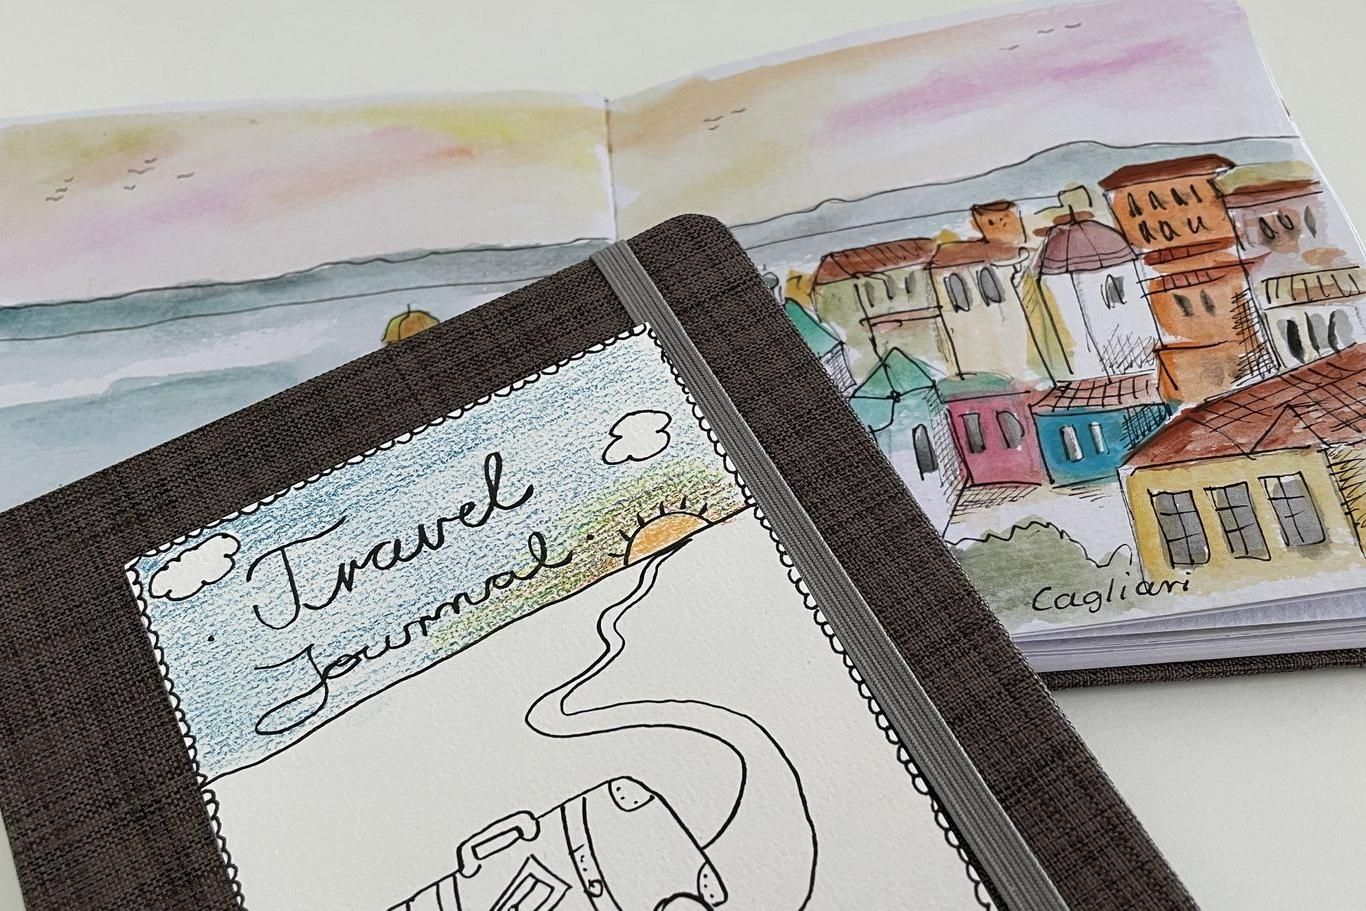 Travel
Journal
Cagliari